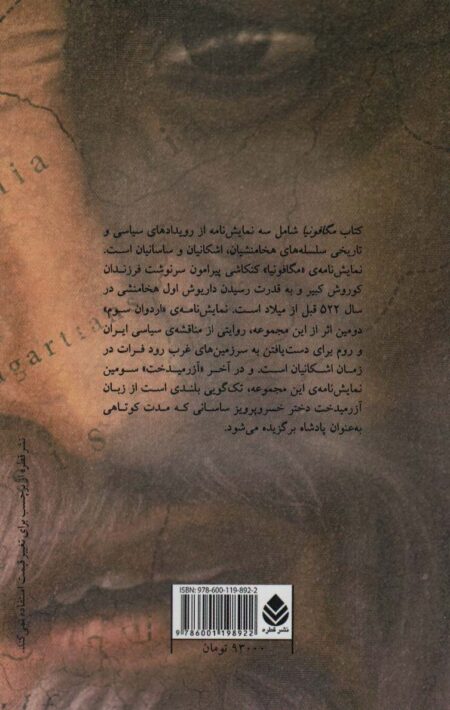 کتاب مگافونیا شامل سه نمایش‌نامه از رویدادهای سیاسی و
تاریخی سلسله‌های هخامنشیان، اشکانیان و ساسانیان است.
نمایش‌نامه‌ی «مگافونیا» کنکاشی پیرامون سرنوشت فرزندان
کوروش کبیر و به قدرت رسیدن داریوش اول هخامنشی در
سال ۵۲۲ قبل از میلاد است. نمایش‌نامه‌ی «اردوان سوم»
دومین اثر از این مجموعه، روایتی از مناقشه‌ی سیاسی ایران
و روم برای دست‌یافتن به سرزمین‌های غرب رود فرات در
زمان اشکانیان است. و در آخر «آزرمیدخت» سومین
نمایش‌نامه‌ی این مجموعه، تک‌گویی بلندی است از زبان
آزرمیدخت دختر خسروپرویز ساسانی که مدت کوتاهی
به‌عنوان پادشاه برگزیده می‌شود.
نشر قطره از برچسب برای تغییر قیمت استفاده نمی‌کند.
agartians
ISBN: 978-600-119-892-2
9 786001 198922
نشر قطره
۹۳۰۰۰ تومان